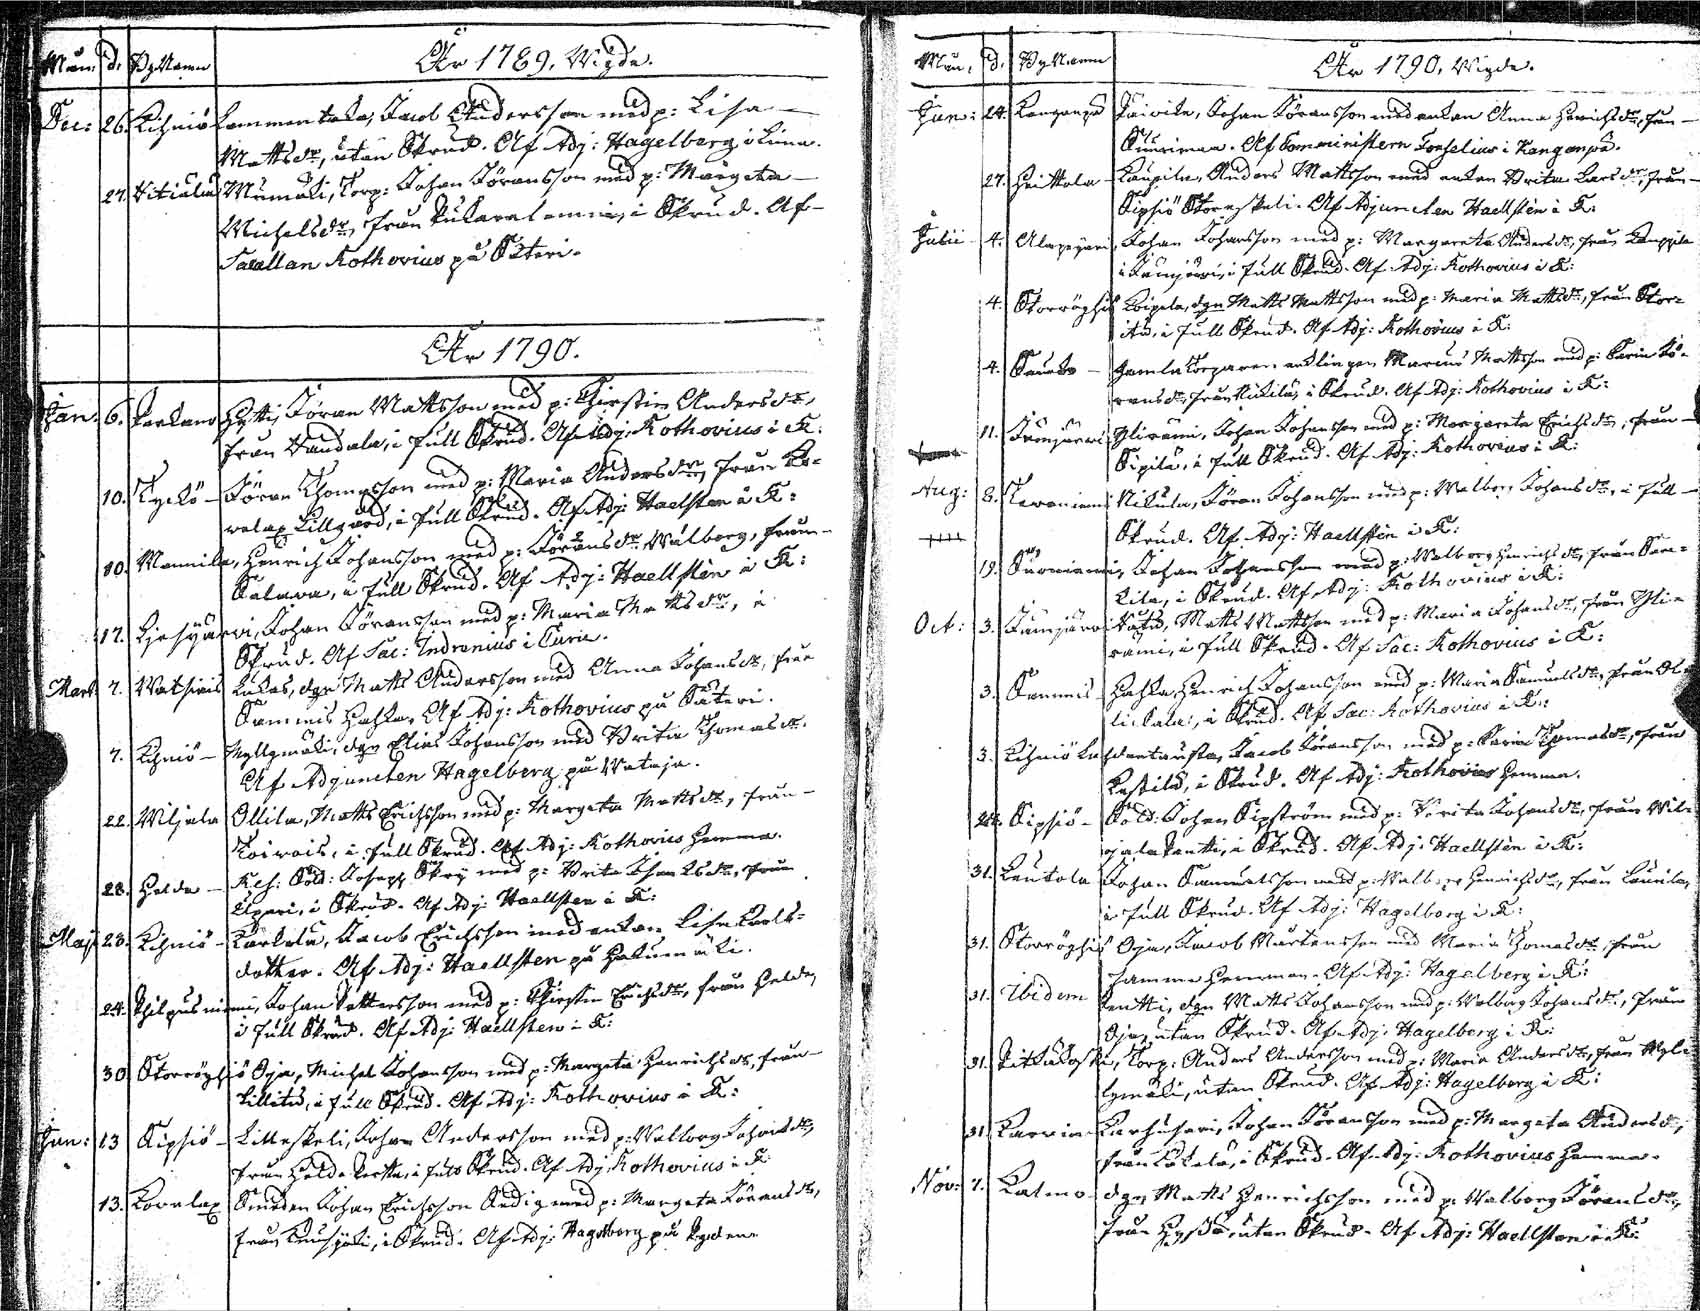 Mån: d. ByNamn År 1789. Wigde.
Dec: 26. Kihniö Lammentaka, Jacob Andersson med p: Lisa
Mattsdr, utan Skrud. Af Adj: Hagelberg i Kuna.
27. Mumäki, Torp: Johan Jöransson med p: Margeta
Michelsdr, från i Skrud. Af
Sacellan Kothovius på Säteri.
År 1790.
Jan: 6. Parkano Hytti, Jöran Mattsson med p: Chirstin Andersdr,
från Vaudala, i full Skrud. Af Adj: Kothovius i K:
10. Kyckö Jöran Thomasson med p: Maria Andersdr, från Ko-
valax Lillgård, i full Skrud. Af Adj: Haellsten i K:
10. Mannila, Henrich Johansson med p: Jöransdr Walborg, från
Salava, i full Skrud. Af Adj: Haellsten i K:
17. Ljesjärvi, Johan Jöransson med p: Maria Mattsdr, i
Skrud. Af Sac: Indrenius i Curu.
Mart: 7. Vatsiais Lukas, dgn Matts Andersson med Anna Johansdr, från
Sammis Hahka. Af Adj: Kothovius på Säteri.
7. Kihniö Myllymäki, dgn Elias Johansson med Brita Thomasdr.
Af Adjuncten Hagelberg på Wataja.
22. Wiljala Ollila, Matts Erichsson med p: Margeta Mattsdr, från
Koivois, i full Skrud. Af Adj: Kothovius hemma.
28. Helde Res: Sold: Joseph Skry med p: Brita från
i Skrud. Af Adj: Haellsten i K:
Maji 23. Kihniö Karkala, Jacob Erichsson med enkan Lisa Carls-
dotter. Af Adj: Haellsten på Hakumäki.
24. Philpusniemi, Johan Pettersson med p: Chirstin Erichsdr, från Helde,
i full Skrud. Af Adj: Haellsten i K:
30. Storröyhiö Oja, Michel Johansson med p: Margeta Henrichsdr, från
Lillitu, i full Skrud. Af Adj: Kothovius i K:
Jun: 13 Sipsiö Lilleskeli, Johan Andersson med p: Walborg Johansdr,
från Helde Pertta, i full Skrud. Af Adj: Kothovius i K
13. Kovalax Smeden Johan Erichsson Redig med p: Margeta Jöransdr,
från i Skrud. Af Adj: Hagelberg på
Mån: d. ByNamn År 1790. Wigde.
Jun: 24. Kanganpä Päivike, Johan Jöransson med enkan Anna Henrichsdr, från
Suurimaa. Af Comministern Forselius i Kanganpä.
27. Heittola Kaupila, Anders Mattsson med enkan Brita Larsdr, från
Sipsiö Storeskeli. Af Adjuncten Haellsten i K:
Julii 4. Alapeyari, Johan Johansson med p: Margareta Andersdr, från Kauppila
i Jämijärvi, i full Skrud. Af Adj: Kothovius i K:
4. Storröyhiö Koipela, dgn Matts Mattsson med p: Maria Mattsdr, från Stor-
itu, i full Skrud. Af Adj: Kothovius i K:
4. Gamla Torparen enklingen Marcus Mattsson med p: Karin Jö-
ransdr, från Nikila, i Skrud. Af Adj: Kothovius i K:
11. Jämijärvi Yliränni, Johan Johansson med p: Margareta Erichsdr, från
Sipilä, i full Skrud. Af Adj: Kothovius i K:
Aug: 8. Kevoniemi Nikula, Jöran Johansson med p: Walborg Johansdr, i full
Skrud. Af Adj: Haellsten i K:
19. Suominiemi, Johan Johansson med p: Walborg Henrichsdr, från
i Skrud. Af Adj: Kothovius i K:
Oct: 3. Jämijärvi Matts Mattsson med p: Maria Johansdr, från Yli-
ränni, i full Skrud. Af Sac: Kothovius i K:
3. Sammis Hahka, Henrich Johansson med p: Maria Samuelsdr, från
i Skrud. Af Sac: Kothovius i K:
3. Kihniö Lahdentausta, Jacob Jöransson med p: Karin Thomasdr, från
Kastila, i Skrud. Af Adj: Kothovius hemma.
24. Sipsiö Sold: Johan Sipström med p: Brita Johansdr, från Wil-
jala Pentti, i Skrud. Af Adj: Haellsten i K:
31. Leutola Johan Samuelsson med p: Walborg Henrichsdr, från Laurila,
i full Skrud. Af Adj: Hagelberg i K:
31. Storröyhiö Oja, Jacob Mårtensson med Maria Thomasdr, från
samma hemman. Af Adj: Hagelberg i K:
31. Ibidem Pentti, dgn Matts Johansson med p: Walborg Johansdr, från
Oja, utan Skrud. Af Adj: Hagelberg i K:
31. Pitkäkoski, Torp: Anders Andersson med p: Maria Andersdr, från Myl-
lymäki, utan Skrud. Af Adj: Hagelberg i K:
31. Karvia Karhusari, Johan Jöransson med p: Margeta Andersdr,
från i Skrud. Af Adj: Kothovius hemma.
Nov: 7. Katmo dgn Matts Henrichsson med p: Walborg Jöransdr,
från utan Skrud. Af Adj: Haellsten i K: